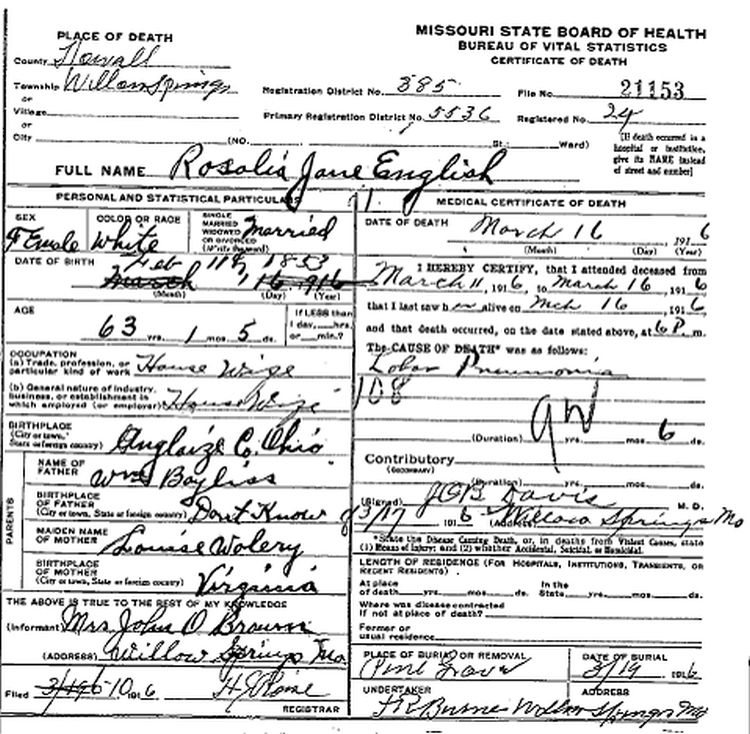 MISSOURI STATE BOARD OF HEALTH
BUREAU OF VITAL STATISTICS
CERTIFICATE OF DEATH
PLACE OF DEATH
County Howall
Township Willow Springs
or
Village
or
City (NO. St.: Ward)
Registration District No. 385
File No. 21153
Primary Registration District No. 5536
Registered No. 24
(If death occurred in a
hospital or institution,
give its NAME instead
of street and number)
FULL NAME Rosalia Jane English
PERSONAL AND STATISTICAL PARTICULARS
SEX
Female
COLOR OR RACE
White
SINGLE
MARRIED
WIDOWED
OR DIVORCED
(Write the word)
Married
DATE OF BIRTH Feb 11th 1853
March 16 916
(Month) (Day) (Year)
AGE
63 yrs. 1 mos. 5 ds.
If LESS than
1 day, hrs.
or min.?
OCCUPATION
(a) Trade, profession, or
particular kind of work House Wife
(b) General nature of industry,
business, or establishment in
which employed (or employer) House Wife
BIRTHPLACE
(City or town,
State or foreign country) Auglaize Co. Ohio
PARENTS
NAME OF
FATHER Wm Bayliss
BIRTHPLACE
OF FATHER
(City or town, State or foreign country) Don't Know
MAIDEN NAME
OF MOTHER Louise Wolery
BIRTHPLACE
OF MOTHER
(City or town, State or foreign country) Virginia
THE ABOVE IS TRUE TO THE BEST OF MY KNOWLEDGE
(Informant) Mrs John O Brown
(ADDRESS) Willow Springs Mo.
Filed 10 191 6
REGISTRAR
11
MEDICAL CERTIFICATE OF DEATH
DATE OF DEATH March 16 1916
(Month) (Day) (Year)
I HEREBY CERTIFY, that I attended deceased from
March 11, 1916, to March 16, 1916
that I last saw her alive on Mch 16 1916,
and that death occurred, on the date stated above, at 6 P. m.
The CAUSE OF DEATH* was as follows:
Lobar Pneumonia
108
(Duration) yrs. mos. 6 ds.
Contributory
(SECONDARY)
(Duration) yrs. mos. ds.
(Signed) J.C.B. Davis M. D.
3/17 191 6 (Address) Willow Springs Mo
*State the Disease Causing Death, or, in deaths from Violent Causes, state
(1) Means of Injury; and (2) whether Accidental, Suicidal, or Homicidal.
LENGTH OF RESIDENCE (FOR HOSPITALS, INSTITUTIONS, TRANSIENTS, OR
RECENT RESIDENTS)
At place
of death yrs. mos. ds.
In the
State yrs. mos. ds.
Where was disease contracted
if not at place of death?
Former or
usual residence
PLACE OF BURIAL OR REMOVAL
Pine Grove
DATE OF BURIAL
3/19 1916
UNDERTAKER
ADDRESS
Willow Springs Mo